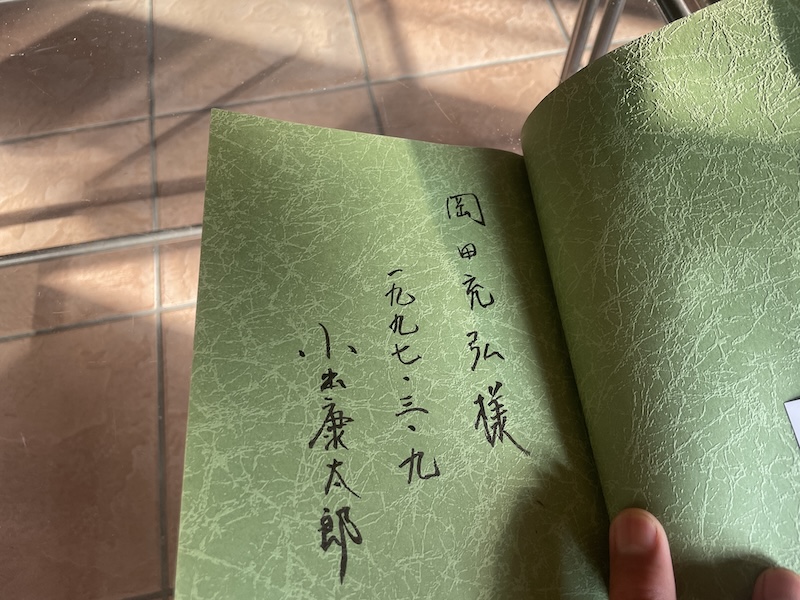 岡田充弘様
一九九七・三・九
小出康太郎